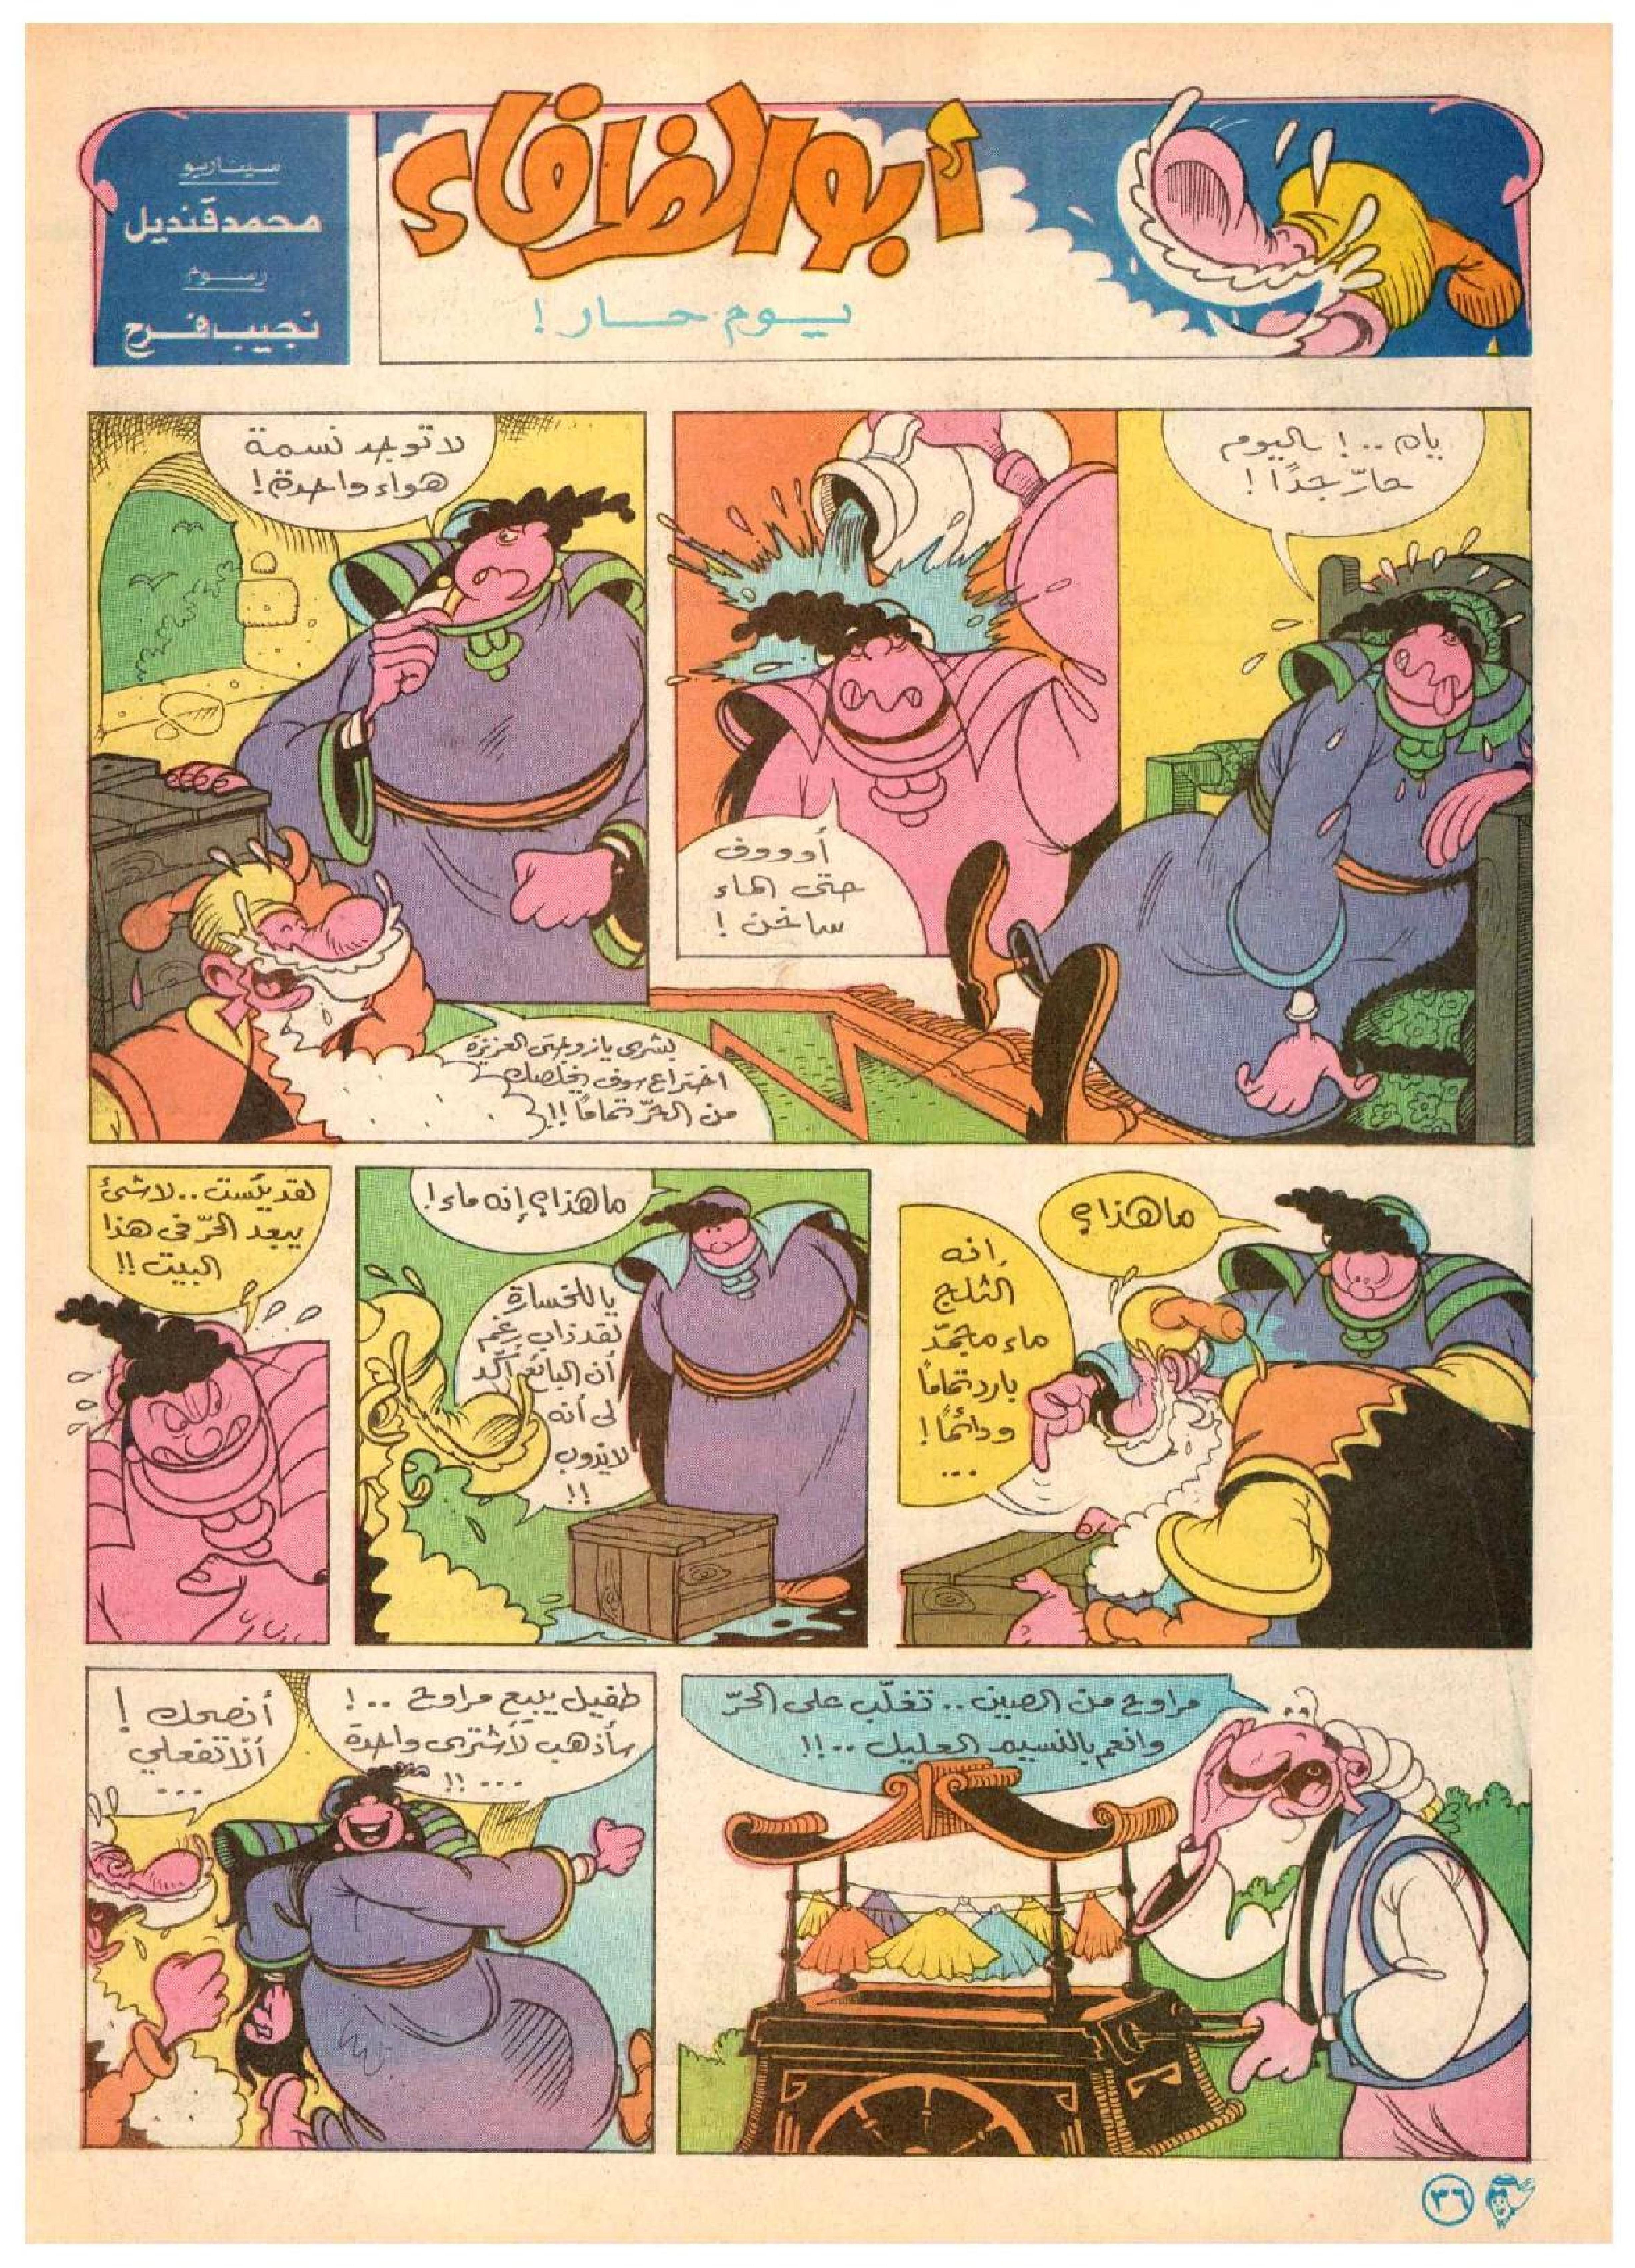 أبو الظرفاء
يوم حار!
سيناريو
محمد قنديل
رسوم
نجيب فرح
ياه ..! اليوم
حارّ جدًا!
أوووف
حتى الماء
ساخن!
لا توجد نسمة
هواء واحدة!
بشرى يا زوجتى العزيزة
اختراع سوف يخلصك
من الحرّ تمامًا!!
ما هذا؟
إنه
الثلج
ماء مجمّد
بارد تمامًا
ودائمًا!
...
ما هذا؟ إنه ماء!
يا للخسارة
لقد ذاب رغم
أن البائع أكّد
لى أنه
لا يذوب
!!
لقد يئست .. لا شئ
يبعد الحرّ فى هذا
البيت!!
مراوح من الصين .. تغلّب على الحرّ
وانعم بالنسيم العليل ..!!
طفيل يبيع مراوح ..!
سأذهب لأشترى واحدة
...!!
أنصحك!
ألا تفعلي
...
٣٦